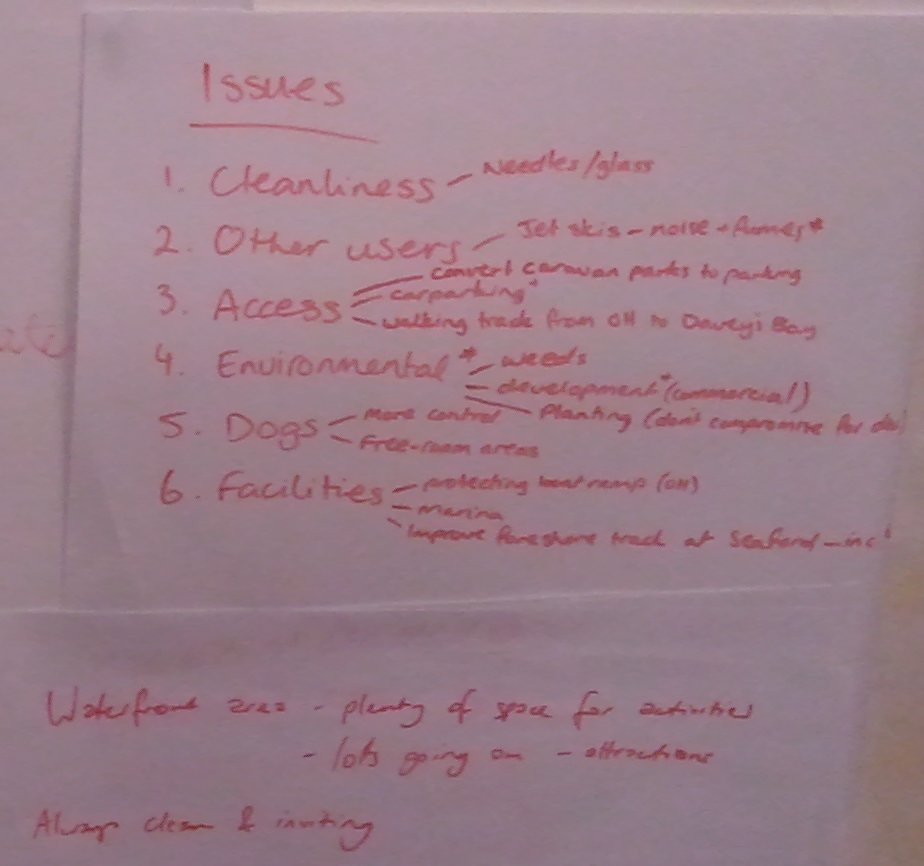 Issues
1. Cleanliness - Needles/glass
2. Other users - Jet skis - noise + fumes*
convert caravan parks to parking
3. Access - carparking*
- walking track from OH to Davey's Bay
4. Environmental* - weeds
- development* (commercial)
- Planting (don't compromise for
5. Dogs - More control
- Free-roam areas
6. Facilities - protecting boat ramp (OH)
- Marina
- Improve foreshore track at Seaford - inc
Waterfront area - plenty of space for activities
- lots going on - attractions
Always clean & inviting